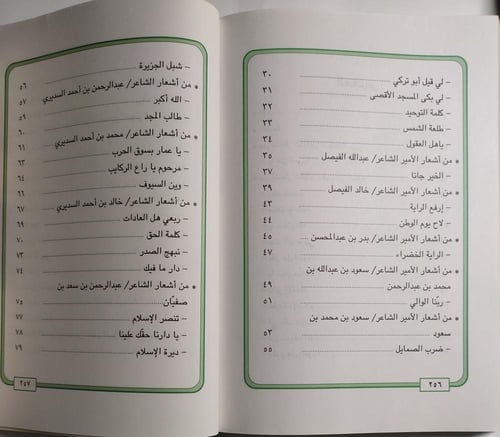 – لي قيل أبو تركي ٣٠
– لي بكى المسجد الأقصى ٣١
– كلمة التوحيد ٣٢
– طلعة الشمس ٣٣
– ياهل العقول ٣٤
* من أشعار الأمير الشاعر/ عبدالله الفيصل ٣٥
– الخير جانا ٣٧
* من أشعار الأمير الشاعر/ خالد الفيصل ٣٩
– إرفع الراية ٤٣
– لاح يوم الوطن ٤٤
* من أشعار الأمير الشاعر/ بدر بن عبدالمحسن ٤٥
– الراية الخضراء ٤٧
* من أشعار الأمير الشاعر/ سعود بن عبدالله بن
محمد بن عبدالرحمن ٤٩
– ربنا الوالي ٥١
* من أشعار الأمير الشاعر/ سعود بن محمد بن
سعود ٥٣
– ضرب الصمايل ٥٥
٢٥٦
– شبل الجزيرة ٥٦
* من أشعار الشاعر/ عبدالرحمن بن أحمد السديري ٥٧
– الله أكبر ٥٩
– طالب المجد ٦٠
* من أشعار الشاعر/ محمد بن أحمد السديري ٦١
– يا عمار بسوق الحرب ٦٣
– مرحوم يا راع الركايب ٦٤
– وين السيوف ٦٦
* من أشعار الشاعر/ خالد بن أحمد السديري ٦٧
– ربعي هل العادات ٦٩
– كلمة الحق ٧٠
– نبهج الصدر ٧٣
– دار ما فيك ٧٤
* من أشعار الشاعر/ عبدالرحمن بن سعد بن
صفيّان ٧٥
– تنصر الإسلام ٧٧
– يا دارنا حقّك علينا ٧٨
– ديرة الإسلام ٧٩
٢٤٧